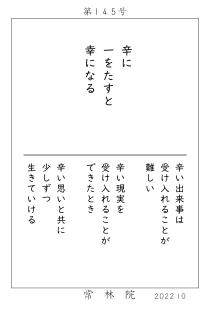 第145号
辛に
一をたすと
幸になる
辛い出来事は
受け入れることが
難しい
辛い現実を
受け入れることが
できたとき
辛い思いと共に
少しずつ
生きていける
常林院
2022.10